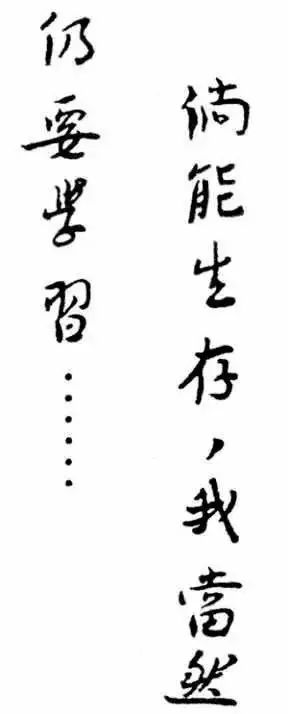 倘能生存，我當然
仍要學習……